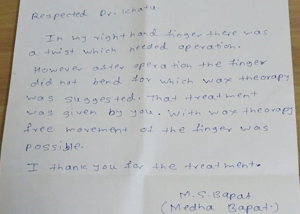 Respected Dr. Khatu
In my right hand finger there was
a twist which needed operation.
However after operation the finger
did not bend for which wax theorapy
was suggested. That treatment
was given by you. With wax theorapy
free movement of the finger was
possible.
I thank you for the treatment.
M. S. Bapat
(Medha Bapat.)